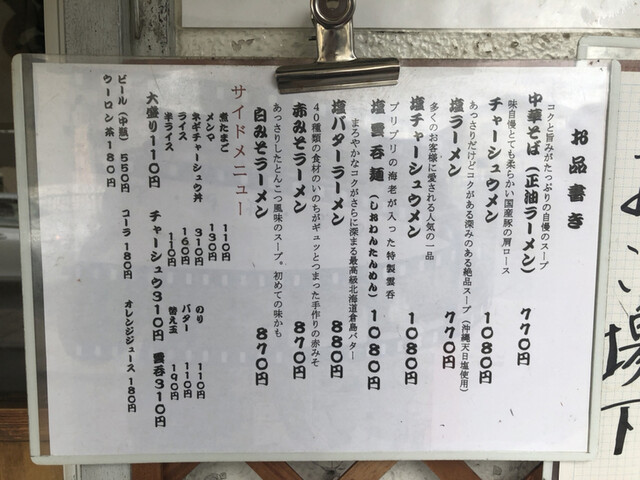 お品書き
コクと旨みがたっぷりの自慢のスープ
中華そば（正油ラーメン） 770円
味自慢とても柔らかい国産豚の肩ロース
チャーシュウメン 1080円
あっさりだけどコクがある深みのある絶品スープ（沖縄天日塩使用）
塩ラーメン 770円
多くのお客様に愛される人気の一品
塩チャーシュウメン 1080円
プリプリの海老が入った特製雲呑
塩雲呑麺（しおわんたんめん） 1080円
まろやかなコクがさらに深まる最高級北海道倉島バター
塩バターラーメン 880円
40種類の食材のいのちがギュッとつまった手作りの赤みそ
赤みそラーメン 870円
あっさりしたとんこつ風味のスープ。初めての味かも
白みそラーメン 870円
サイドメニュー
煮たまご 110円 のり 110円
メンマ 130円 バター 110円
ネギチャーシュウ丼 310円 替え玉 190円
ライス 160円
半ライス 110円
大盛り110円 チャーシュウ310円 雲呑310円
ビール（中瓶）550円 コーラ180円 オレンジジュース180円
ウーロン茶180円
場